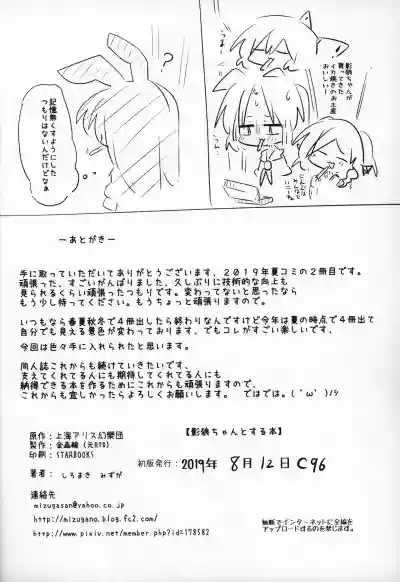 影狼ちゃんが
買ってきた
イカ焼きのお土産
おいしいー
？
記憶無くすようにした
つもりはないんだけどなぁ
ーあとがきー
手に取っていただいてありがとうございます、２０１９年夏コミの２冊目です。
頑張った、すごいがんばりました、久しぶりに技術的な向上も
見られるくらい頑張ったつもりです。変わってないと思ったなら
もう少し待ってください。もうちょっと頑張りますので。
いつもなら春夏秋冬で４冊出したら終わりなんですけど今年は夏の時点で４冊出て
自分でも見える景色が変わっております、でもコレがすごい楽しいです、
今回は色々手に入れられたと思います。
同人誌これからも続けていきたいです、
支えてくれてる人にも期待してくれてる人にも
納得できる本を作るためにこれからも頑張りますので、
これからも宜しかったらよろしくお願いします。 ではでは。( 'ω')ﾉｼ
原作：上海アリス幻樂団
製作：金晶輪（元RTD）
印刷：STARBOOKS
【影狼ちゃんとする本】
初版発行：2019年 8月12日 C96
著者： しろまき みずが
連絡先
mizugasan@yahoo.co.jp
http://mizugano.blog.fc2.com/
http://www.pixiv.net/member.php?id=178582
無断でインターネットに全編を
アップロードするのを禁じます。